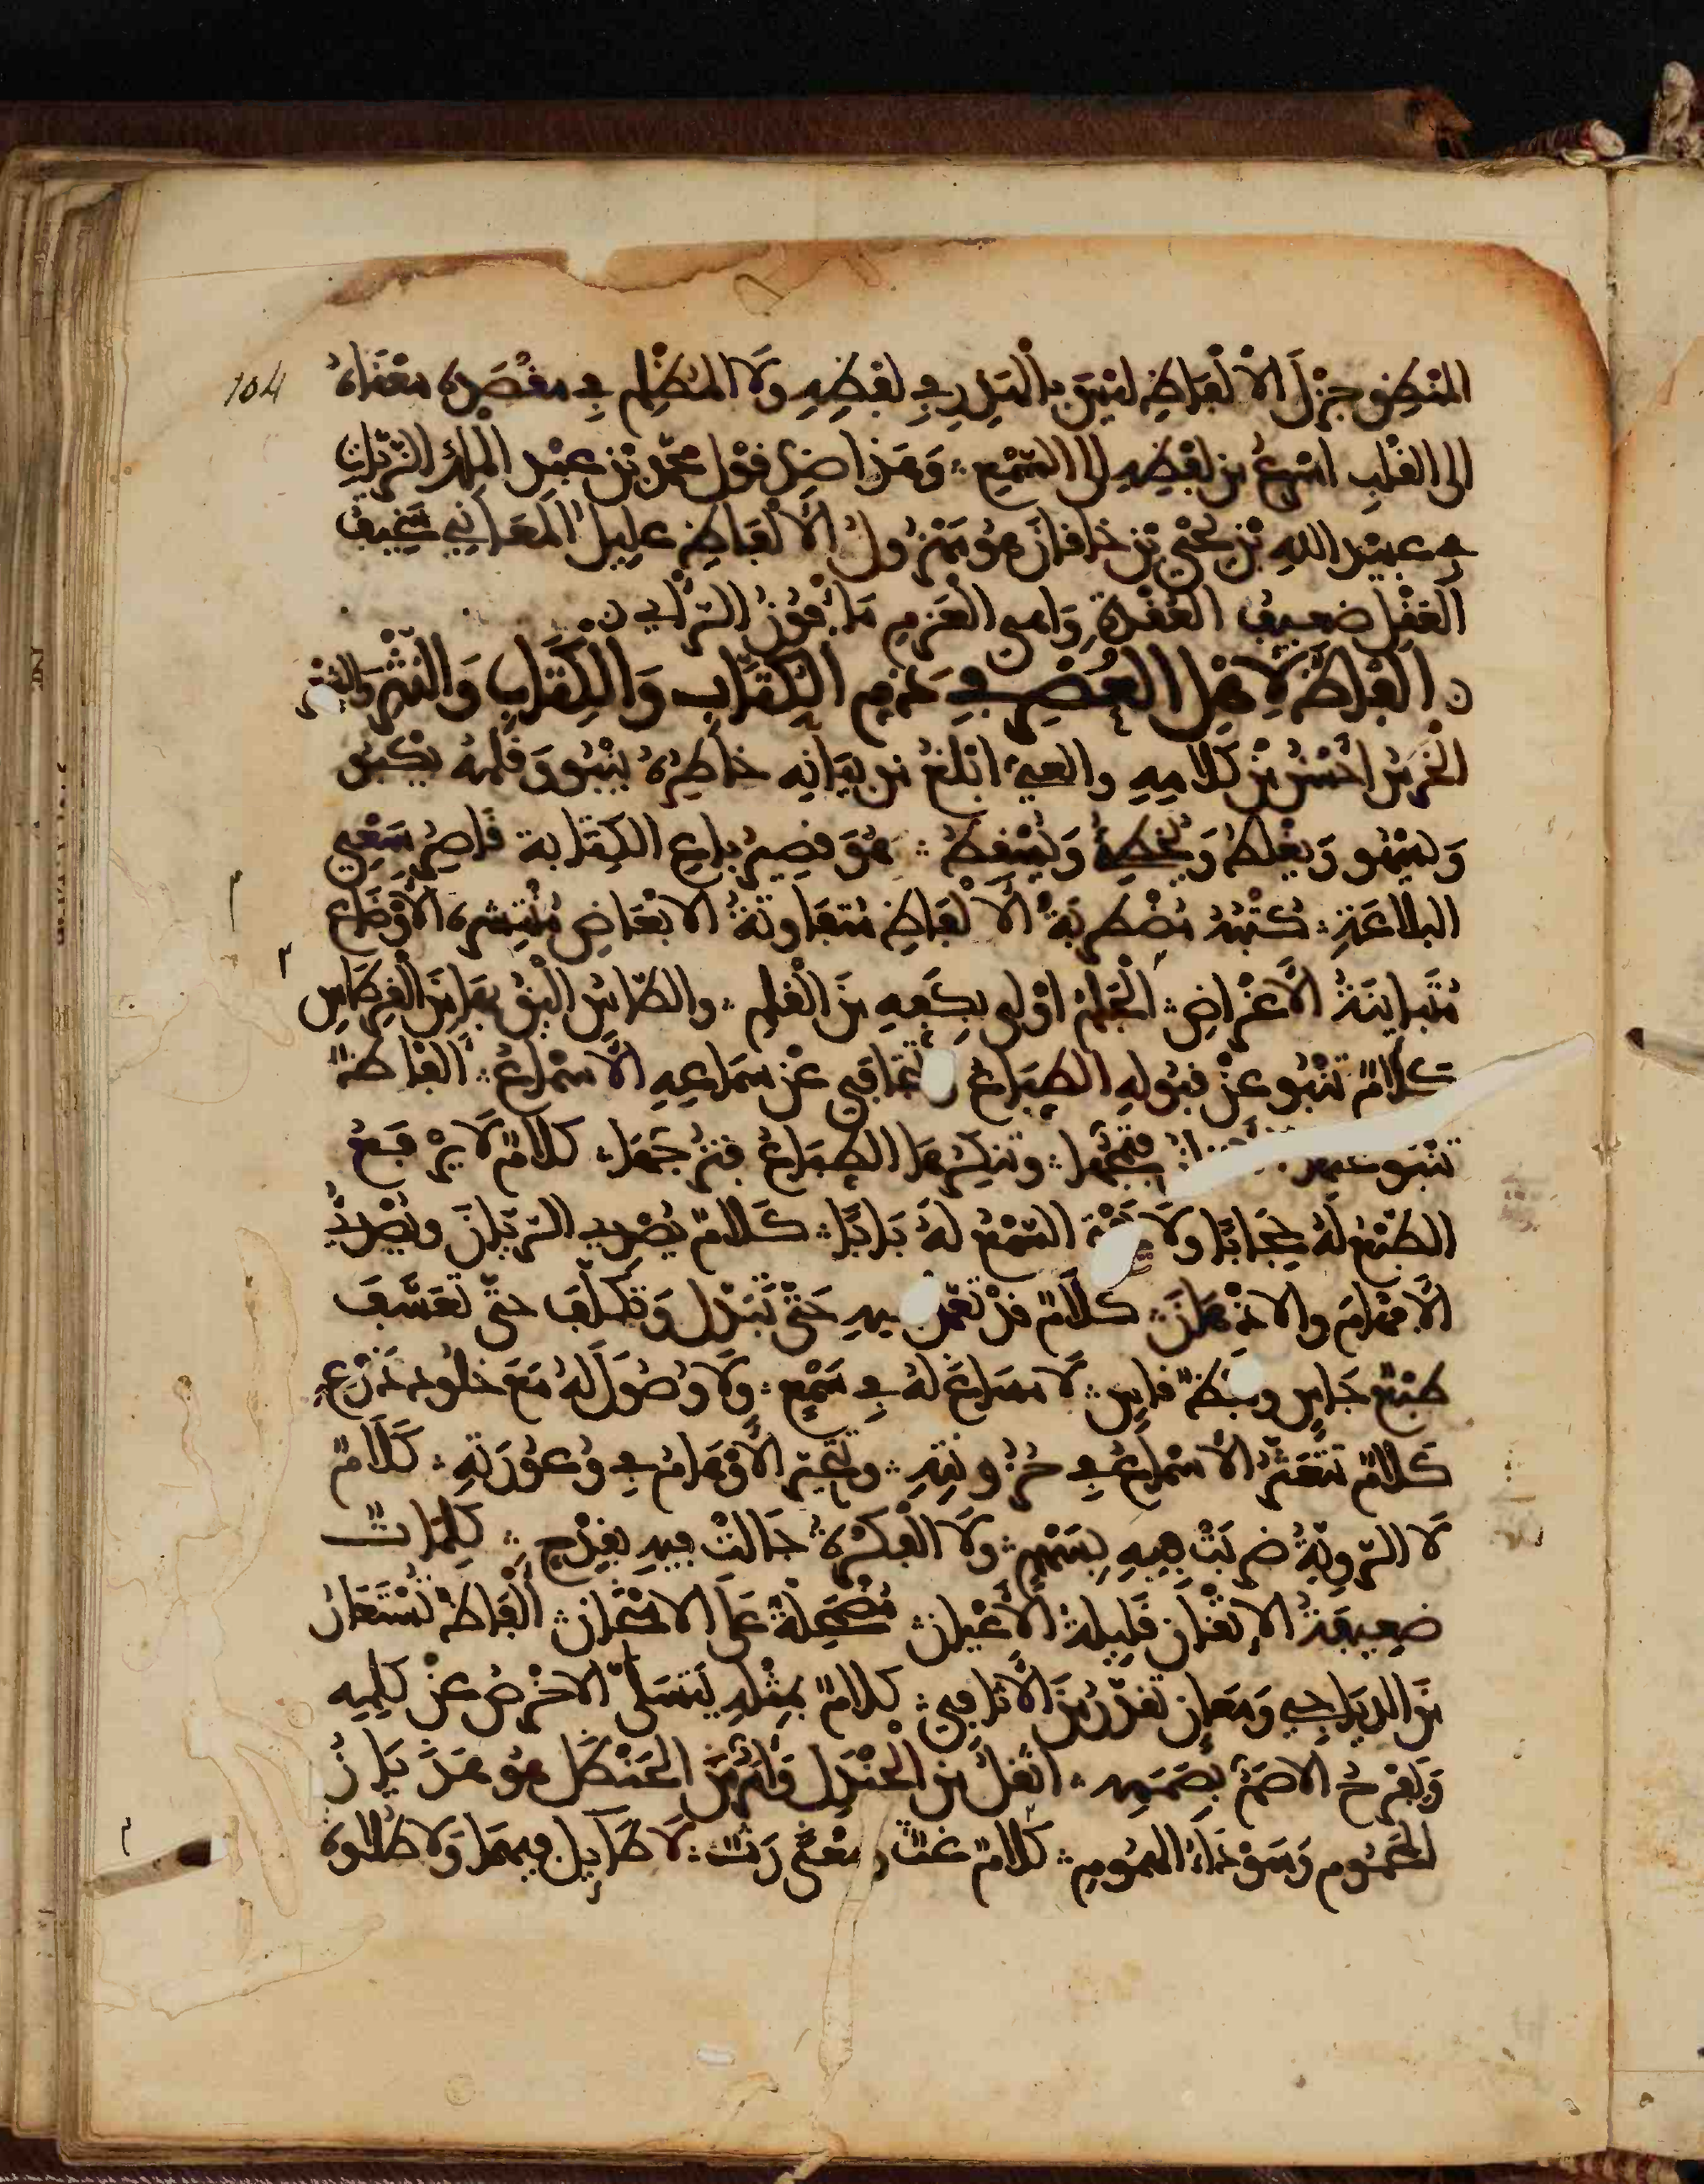 104
المنطق جزل الالفاظ ليس بالهذر في لفظه ولا المظلم في مقصده معناه
الى القلب اسرع من لفظه الى السمع وهذا ضد قول محمد بن عبد الملك الزيات
في عبيد الله بن يحيى بن خاقان هو مهزول الالفاظ عليل المعاني سخيف
العقل ضعيف العقدة واهي العزم مافون الراي
الفاظ لاهل العصر في ذم الكتاب والكتاب والنثر والشعر
الخرس احسن من كلامه والعي ابلغ من بيانه خاطره ينبو وقلمه يكبو
ويسهو ويغلط ويخطئ ويسقط هو قصير باع الكتابة قاصر سعي
البلاغة كتبه مضطربة الالفاظ متفاوتة الابعاض منتشرة الاوضاع
متباينة الاغراض الجلم اولى بكفه من القلم والطاس اليق بها من القرطاس
كلام تنبو عن قبوله الطباع وتتجافى عن سماعه الاسماع الفاظ
تنبو عنها الاذان فتمجها وتنكرها الطباع فتزجها كلام لا يرفع
الطبع له حجابا ولا يفتح السمع له بابا كلام يصدي الريان ويصدئ
الافهام والاذهان كلام قد تعمل فيه حتى تبذل وتكلف حتى تعسف
طبع جاس ولفظ قاس لا مساغ له في سمع ولا وصول له مع خلو ذرع
كلام تتعثر الاسماع في حزونته وتتحير الاوهام في وعورته كلام
لا الروية ضربت فيه بسهم ولا الفكرة جالت فيه بقدح كلمات
ضعيفة الاتقان قليلة الاعيان مضمحلة على الامتحان الفاظ تستعار
من الدياجي ومعان تقدر من الاثافي كلام بمثله يتسلى الاخرس عن كلمه
ويفرح الاصم بصممه اثقل من الجندل وامر من الحنظل هو هذيان
المحموم وسوداء المهموم كلام غث ومعنى رث لا طايل فيهما ولا طلاوة